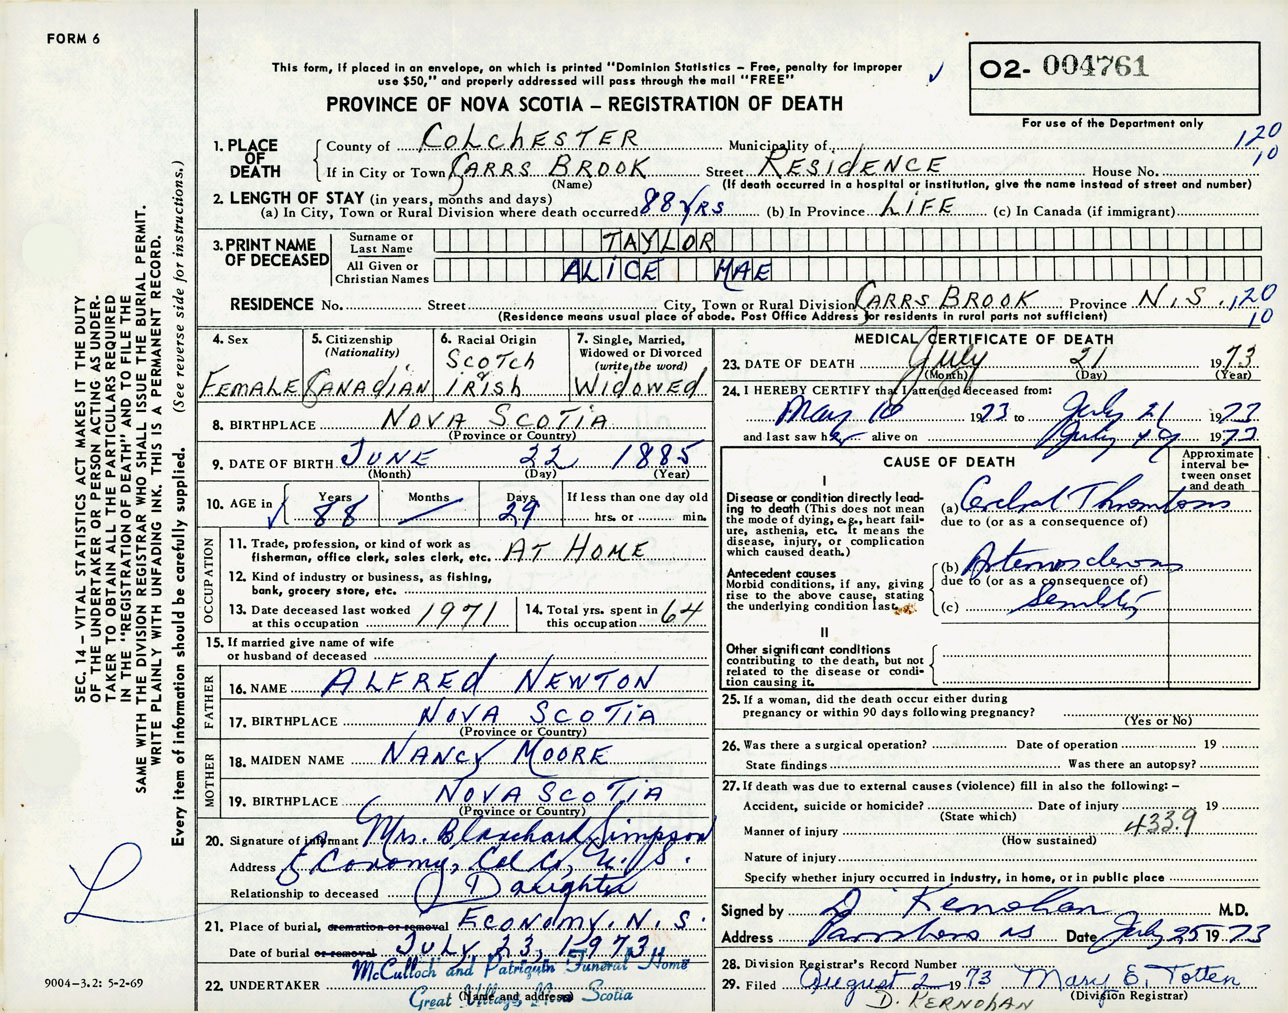 FORM 6
This form, if placed in an envelope, on which is printed "Dominion Statistics – Free, penalty for improper
use $50," and properly addressed will pass through the mail "FREE"
O2- 004761
PROVINCE OF NOVA SCOTIA – REGISTRATION OF DEATH
For use of the Department only
1. PLACE OF DEATH
County of COLCHESTER Municipality of
120
10
If in City or Town CARRS BROOK Street RESIDENCE House No.
(Name) (If death occurred in a hospital or institution, give the name instead of street and number)
2. LENGTH OF STAY (in years, months and days)
(a) In City, Town or Rural Division where death occurred 88 YRS (b) In Province LIFE (c) In Canada (if immigrant)
3. PRINT NAME OF DECEASED
Surname or Last Name TAYLOR
All Given or Christian Names ALICE MAE
RESIDENCE No. Street City, Town or Rural Division CARRS BROOK Province N.S. 120
10
(Residence means usual place of abode. Post Office Address for residents in rural parts not sufficient)
4. Sex
FEMALE
5. Citizenship
(Nationality)
CANADIAN
6. Racial Origin
SCOTCH
&
IRISH
7. Single, Married,
Widowed or Divorced
(write the word)
WIDOWED
8. BIRTHPLACE NOVA SCOTIA
(Province or Country)
9. DATE OF BIRTH JUNE 22 1885
(Month) (Day) (Year)
10. AGE in Years 88 Months — Days 29 If less than one day old
hrs. or min.
OCCUPATION
11. Trade, profession, or kind of work as
fisherman, office clerk, sales clerk, etc. AT HOME
12. Kind of industry or business, as fishing,
bank, grocery store, etc.
13. Date deceased last worked
at this occupation 1971
14. Total yrs. spent in
this occupation 64
15. If married give name of wife
or husband of deceased
FATHER
16. NAME ALFRED NEWTON
17. BIRTHPLACE NOVA SCOTIA
(Province or Country)
MOTHER
18. MAIDEN NAME NANCY MOORE
19. BIRTHPLACE NOVA SCOTIA
(Province or Country)
20. Signature of informant Mrs. Blanchard Simpson
Address Economy, Col Co, N. S.
Relationship to deceased Daughter
21. Place of burial, cremation or removal ECONOMY. N. S.
Date of burial or removal JULY 23, 1973
22. UNDERTAKER McCulloch and Patriquin Funeral Home
(Name and address)
Great Village, Nova Scotia
MEDICAL CERTIFICATE OF DEATH
23. DATE OF DEATH July 21 1973
(Month) (Day) (Year)
24. I HEREBY CERTIFY that I attended deceased from:
May 10 1973 to July 21 1973
and last saw her alive on July 19 1973
CAUSE OF DEATH
Approximate interval between onset and death
I
Disease or condition directly leading to death (This does not mean
the mode of dying, e.g., heart failure, asthenia, etc. It means the
disease, injury, or complication
which caused death.)
(a) Cerebral Thrombosis
due to (or as a consequence of)
Antecedent causes
Morbid conditions, if any, giving
rise to the above cause, stating
the underlying condition last.
(b) Arteriosclerosis
due to (or as a consequence of)
(c) Senility
II
Other significant conditions
contributing to the death, but not
related to the disease or condition causing it.
25. If a woman, did the death occur either during
pregnancy or within 90 days following pregnancy?
(Yes or No)
26. Was there a surgical operation? Date of operation 19
State findings Was there an autopsy?
27. If death was due to external causes (violence) fill in also the following: –
Accident, suicide or homicide? Date of injury 19
(State which)
Manner of injury 433.9
(How sustained)
Nature of injury
Specify whether injury occurred in industry, in home, or in public place
Signed by D. Kernohan M.D.
Address Parrsboro NS Date July 25 1973
28. Division Registrar's Record Number
29. Filed August 2 1973 Mary E. Totten
(Division Registrar)
D. KERNOHAN
SEC. 14 – VITAL STATISTICS ACT MAKES IT THE DUTY
OF THE UNDERTAKER OR PERSON ACTING AS UNDER-
TAKER TO OBTAIN ALL THE PARTICULARS REQUIRED
IN THE "REGISTRATION OF DEATH" AND TO FILE THE
SAME WITH THE DIVISION REGISTRAR WHO SHALL ISSUE THE BURIAL PERMIT.
WRITE PLAINLY WITH UNFADING INK. THIS IS A PERMANENT RECORD.
Every item of information should be carefully supplied. (See reverse side for instructions.)
L
9004–3.2: 5-2-69